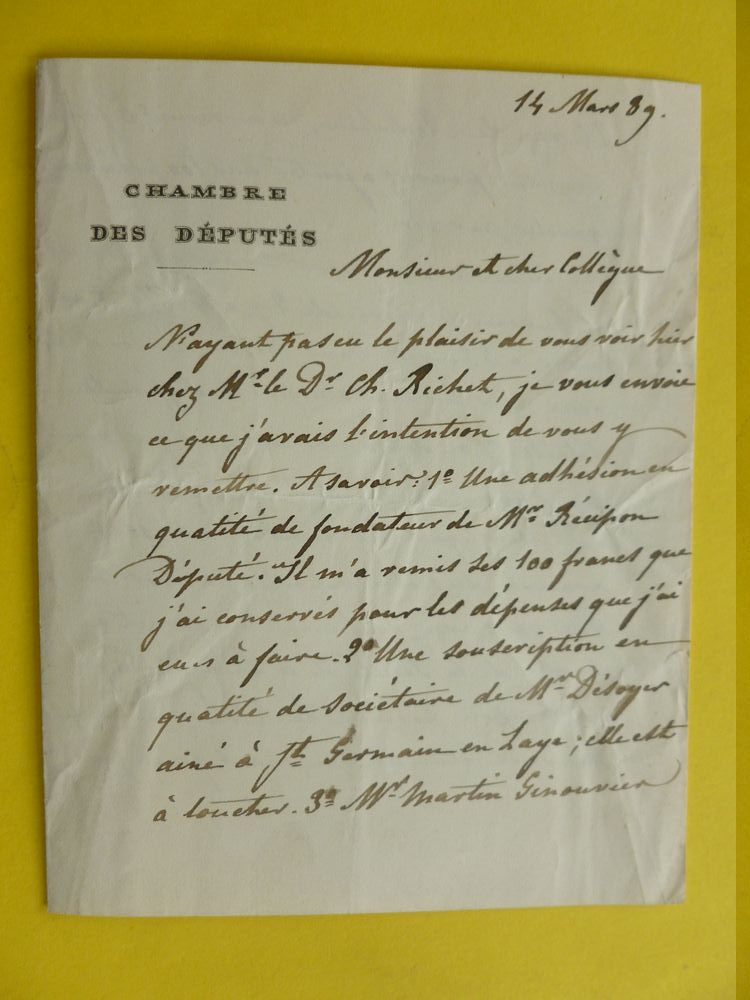 14 Mars 89.
CHAMBRE
DES DÉPUTÉS
Monsieur et cher Collègue
N'ayant pas eu le plaisir de vous voir hier
chez Mr. le Dr Ch. Richet, je vous envoie
ce que j'avais l'intention de vous y
remettre. A savoir: 1º Une adhésion en
qualité de fondateur de Mr. Récipon
Député. Il m'a remis ses 100 francs que
j'ai conservés pour les dépenses que j'ai
eues à faire. 2º Une souscription en
qualité de Sociétaire de Mr. Désoyer
ainé à St Germain en Laye; elle est
à toucher. 3º Mr. Martin Ginouvier